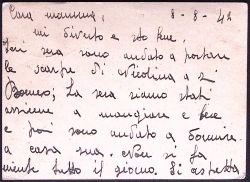 Cara mamma, 8-8-42
mi diverto e sto bene.
Ieri sera sono andato a portare
le scarpe di Nicolina a zi
Romeo; La sera siamo stati
assieme a mangiare e bere
e poi sono andato a dormire
a casa sua. Non si fa
niente tutto il giorno. Si aspetta